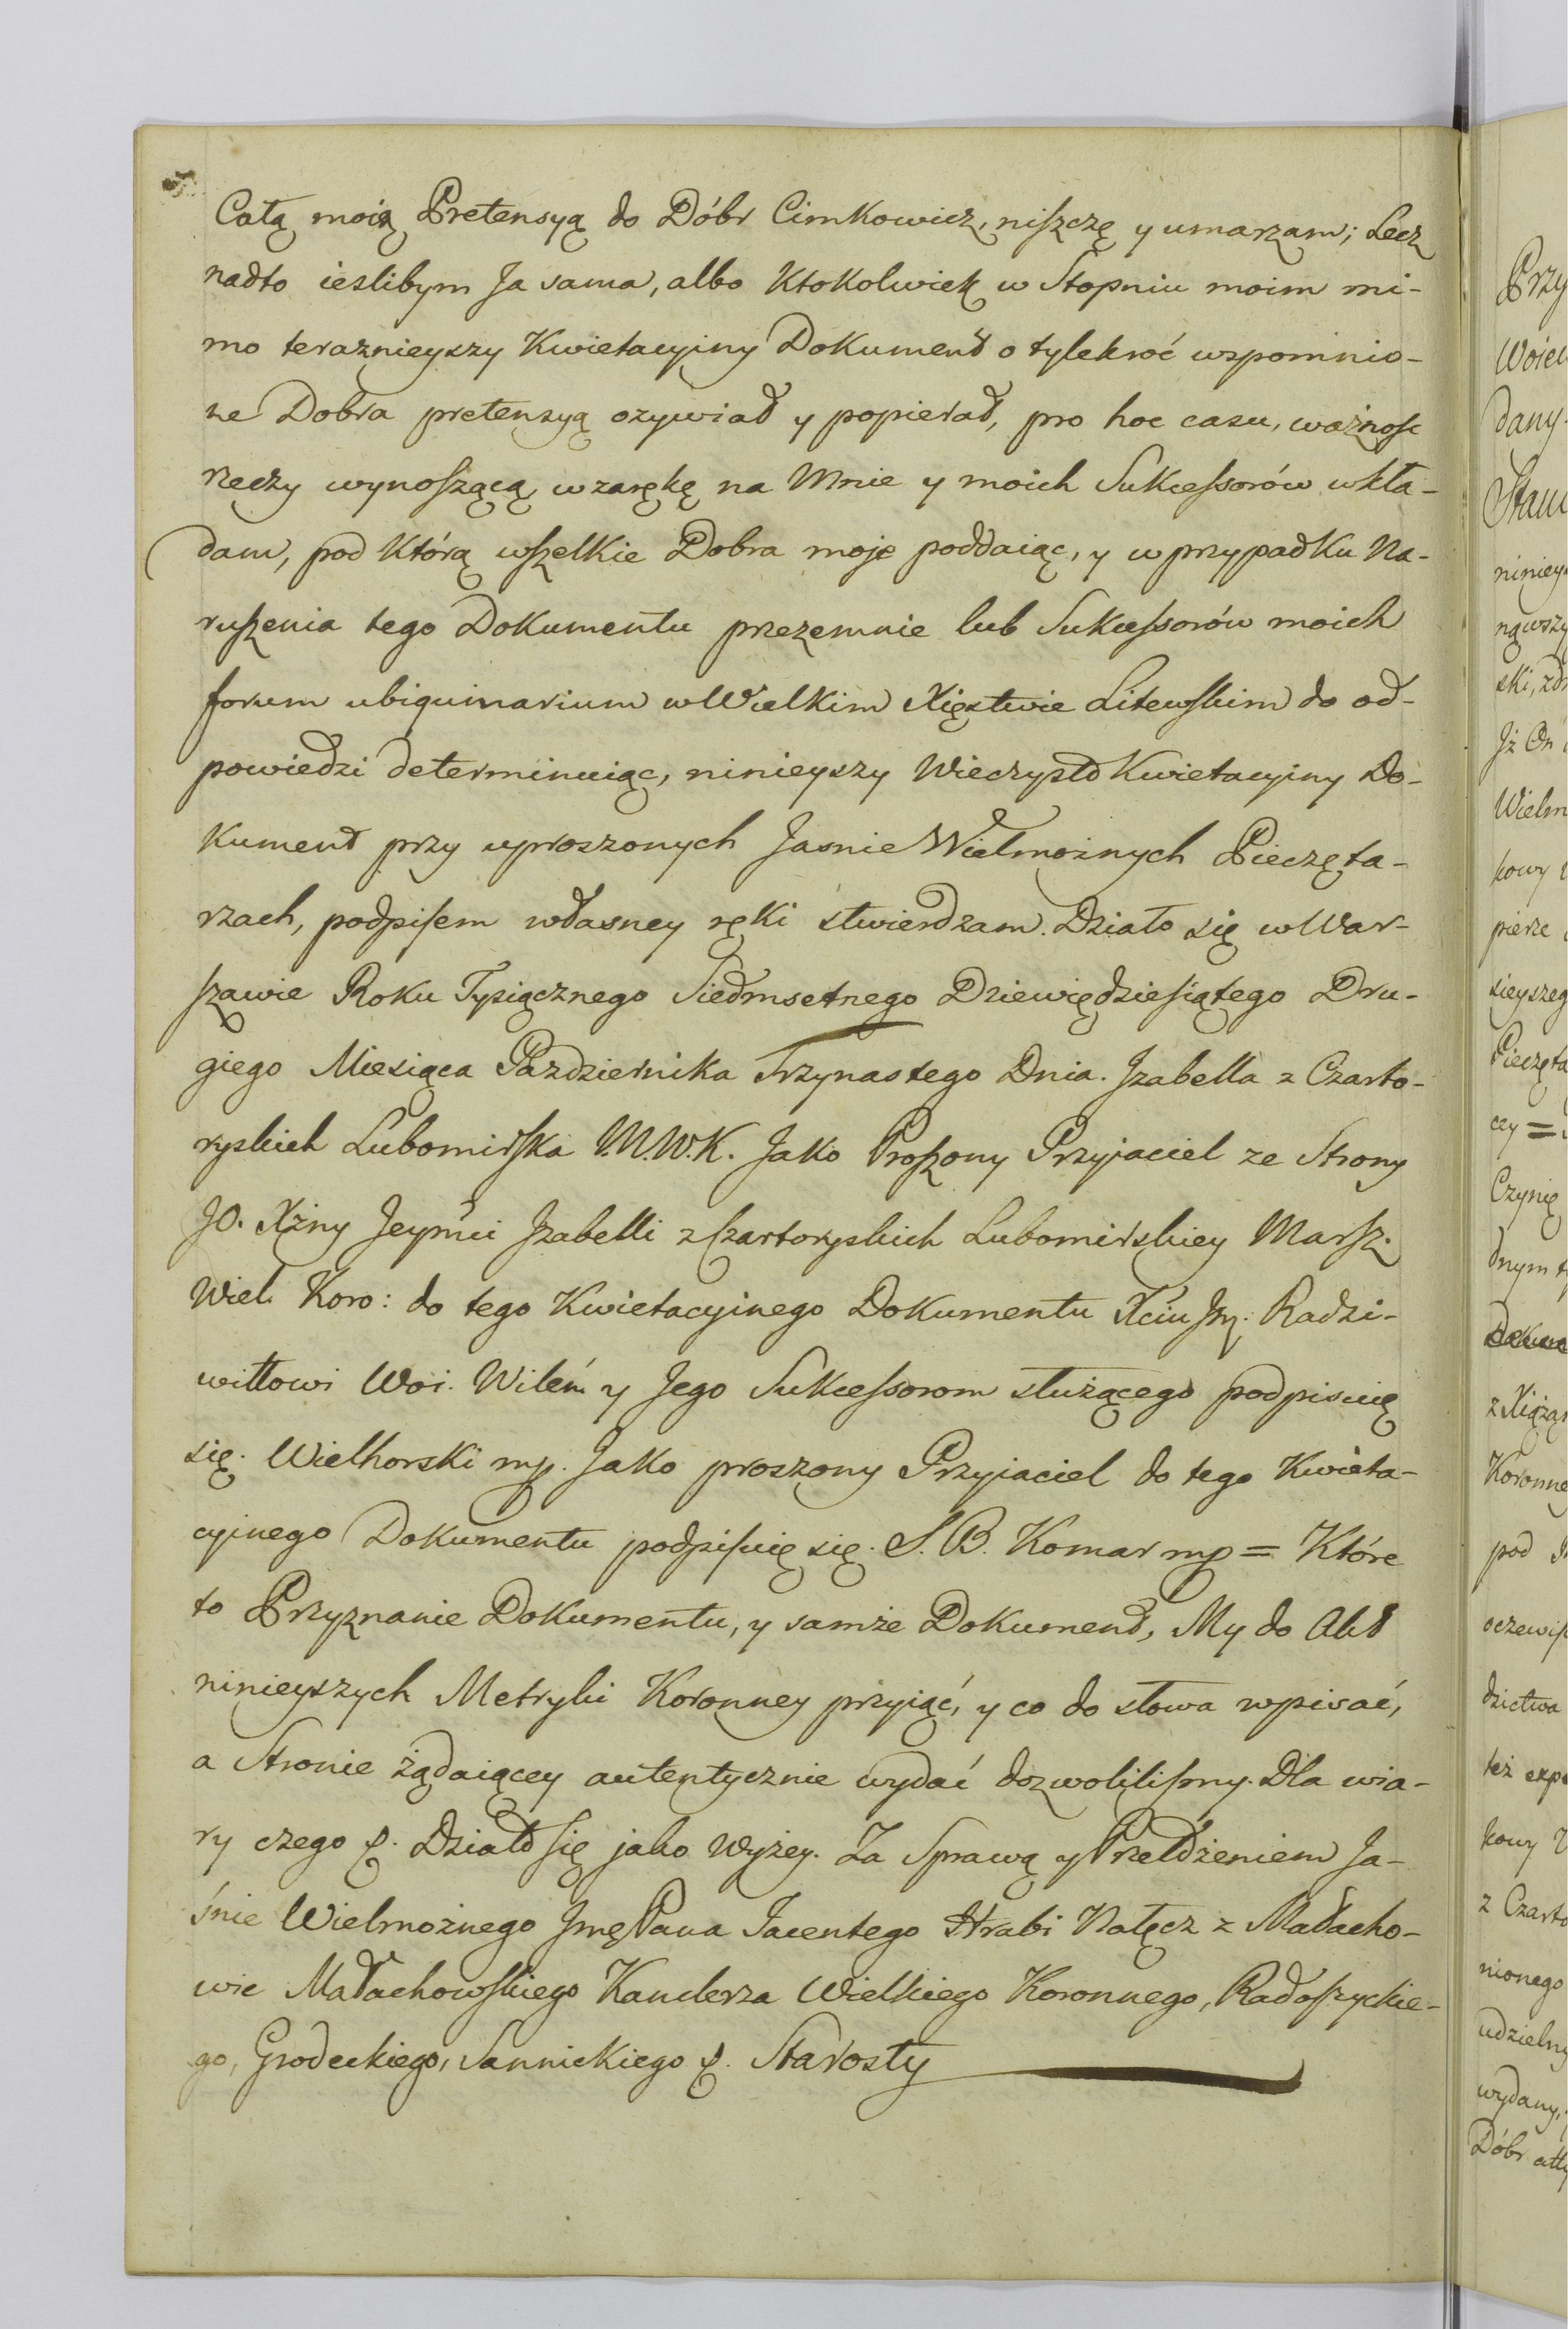 Całą moią Pretensyą do Dóbr Cimkowicz, niszczę y umarzam; Lecz
nadto ieslibym Ja sama, albo Ktokolwiek w Stopniu moim mi-
mo teraznieyszy Kwietacyiny Dokument o tylekroć wspomnio-
ne Dobra pretensyą ozywiał y popierał, pro hoc casu, ważnosc
rzeczy wynoszącą w zarękę na Mnie y moich Sukcessorów wkła-
dam, pod Którą wszelkie Dobra moje poddaiąc, y w przypadku Na-
ruszenia tego Dokumentu przezemnie lub Sukcessorów moich
forum ubiquinarium w Wielkim Xięstwie Litewskim do od-
powiedzi determinuiąc, ninieyszy Wieczysto Kwietacyiny Do-
kument przy uproszonych Jasnie Wielmożnych Pieczęta-
rzach, podpisem własney ręki stwierdzam. Działo się w War-
szawie Roku Tysiącznego Siedmsetnego Dziewiędziesiątego Dru-
giego Miesiąca Pazdziernika Trzynastego Dnia. Jzabella z Czarto-
ryskich Lubomirska M.W.K. Jako Proszony Przyjaciel ze Strony
JO. Xżny Jeymci Jzabelli z Czartoryskich Lubomirskiey Marsz.
Wiel. Koro: do tego Kwietacyinego Dokumentu Xciu Jm. Radzi-
wiłłowi Woi. Wileń. y Jego Sukcessorom służącego podpisuię
się. Wielhorski mp. Jako proszony Przyiaciel do tego Kwieta-
cyinego Dokumentu podpisuię się. S. B. Komar mp = Które
to Przyznanie Dokumentu, y samże Dokument, My do Akt
ninieyszych Metryki Koronney przyiąć, y co do słowa wpisać,
a Stronie żądaiącey autentycznie wydać dozwolilismy. Dla wia-
ry czego &. Działo się jako Wyżey. Za Sprawą y Przełożeniem Ja-
śnie Wielmożnego Jmę Pana Jacentego Hrabi Nałęcz z Małacho-
wic Małachowskiego Kanclerza Wielkiego Koronnego, Radoszyckie-
go, Grodeckiego, Sannickiego &. Starosty